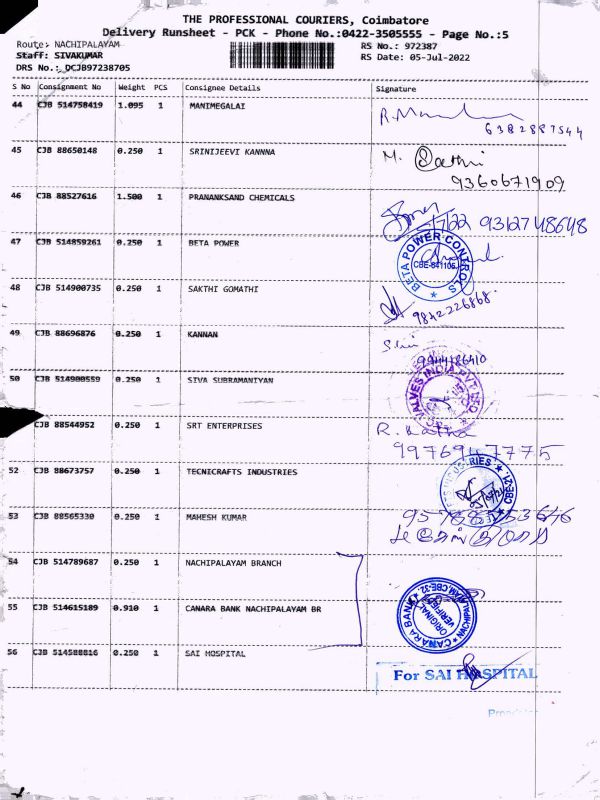 THE PROFESSIONAL COURIERS, Coimbatore
Delivery Runsheet - PCK - Phone No.:0422-3505555 - Page No.:5
Route: NACHIPALAYAM
Staff: SIVAKUMAR
DRS No.: DCJB97238705
RS No.: 972387
RS Date: 05-Jul-2022
S No Consignment No Weight PCS Consignee Details Signature
44 CJB 514758419 1.095 1 MANIMEGALAI
6382887544
45 CJB 88650148 0.250 1 SRINIJEEVI KANNNA M. Sathi
9360671909
46 CJB 88527616 1.500 1 PRANANKSAND CHEMICALS
9312748648
47 CJB 514859261 0.250 1 BETA POWER
BETA POWER CONTROLS
CBE-641105
48 CJB 514900735 0.250 1 SAKTHI GOMATHI
9842226868
49 CJB 88696876 0.250 1 KANNAN
50 CJB 514900559 0.250 1 SIVA SUBRAMANIYAN
VALVES INDIA PVT
CJB 88544952 0.250 1 SRT ENTERPRISES R.
52 CJB 88673757 0.250 1 TECNICRAFTS INDUSTRIES
CBE-21
53 CJB 88565330 0.250 1 MAHESH KUMAR
54 CJB 514789687 0.250 1 NACHIPALAYAM BRANCH
55 CJB 514615189 0.910 1 CANARA BANK NACHIPALAYAM BR
CANARA BANK
NACHIPALAYAM, CBE-32
ORIGINAL
VERIFIED
56 CJB 514580816 0.250 1 SAI HOSPITAL
For SAI HOSPITAL